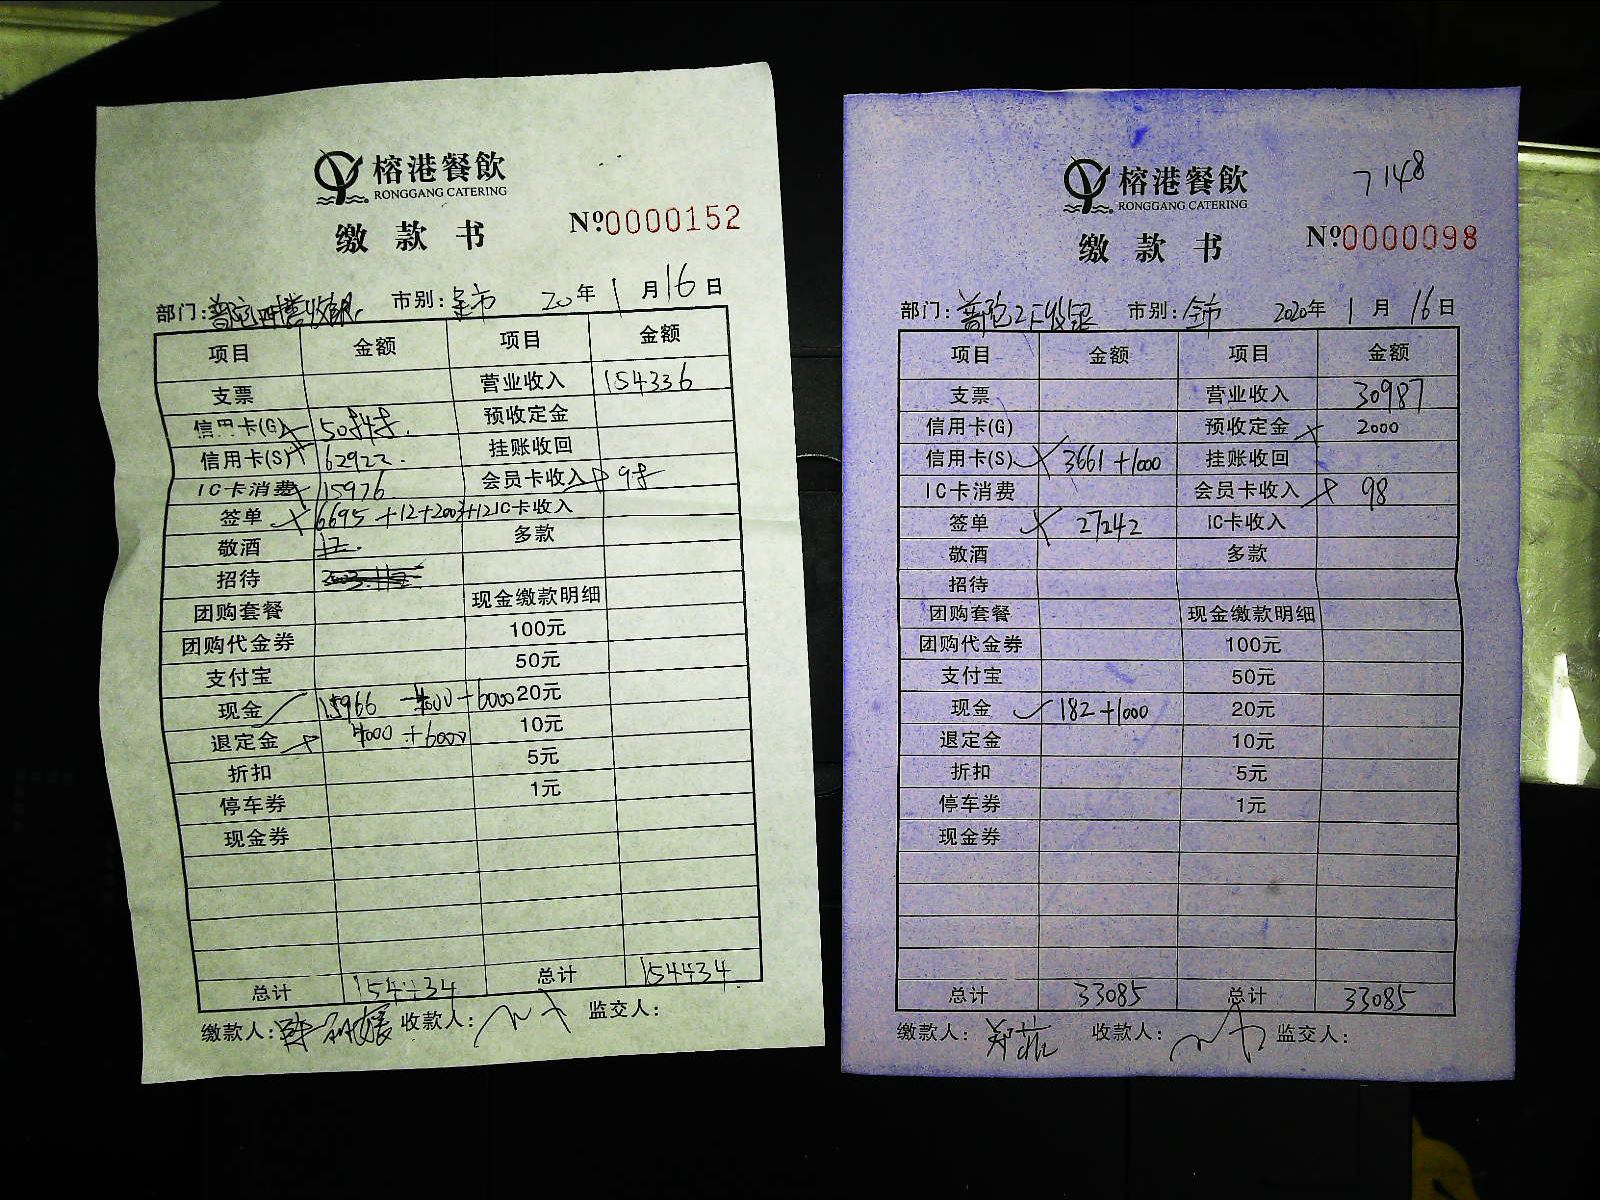 榕港餐飲
RONGGANG CATERING
缴款书
№0000152
部门:普陀四楼收银 市别:全市 20年1月16日
项目 金额 项目 金额
支票 营业收入 154336
信用卡(G) 50848. 预收定金
信用卡(S) 62922. 挂账收回
IC卡消费 15976 会员卡收入 98
签单 6695+12+2003+12 IC卡收入
敬酒 多款
招待
团购套餐 现金缴款明细
团购代金券 100元
支付宝 50元
现金 15966 -4000+6000 20元
退定金 4000+6000 10元
折扣 5元
停车券 1元
现金券
总计 154434 总计 154434
缴款人: 收款人: 监交人:
榕港餐飲
RONGGANG CATERING
7148
缴款书
№0000098
部门:普陀2F收银 市别:全市 2020年1月16日
项目 金额 项目 金额
支票 营业收入 30987
信用卡(G) 预收定金 2000
信用卡(S) 3661+1000 挂账收回
IC卡消费 会员卡收入 98
签单 27242 IC卡收入
敬酒 多款
招待
团购套餐 现金缴款明细
团购代金券 100元
支付宝 50元
现金 182+1000 20元
退定金 10元
折扣 5元
停车券 1元
现金券
总计 33085 总计 33085
缴款人: 郑 收款人: 监交人: